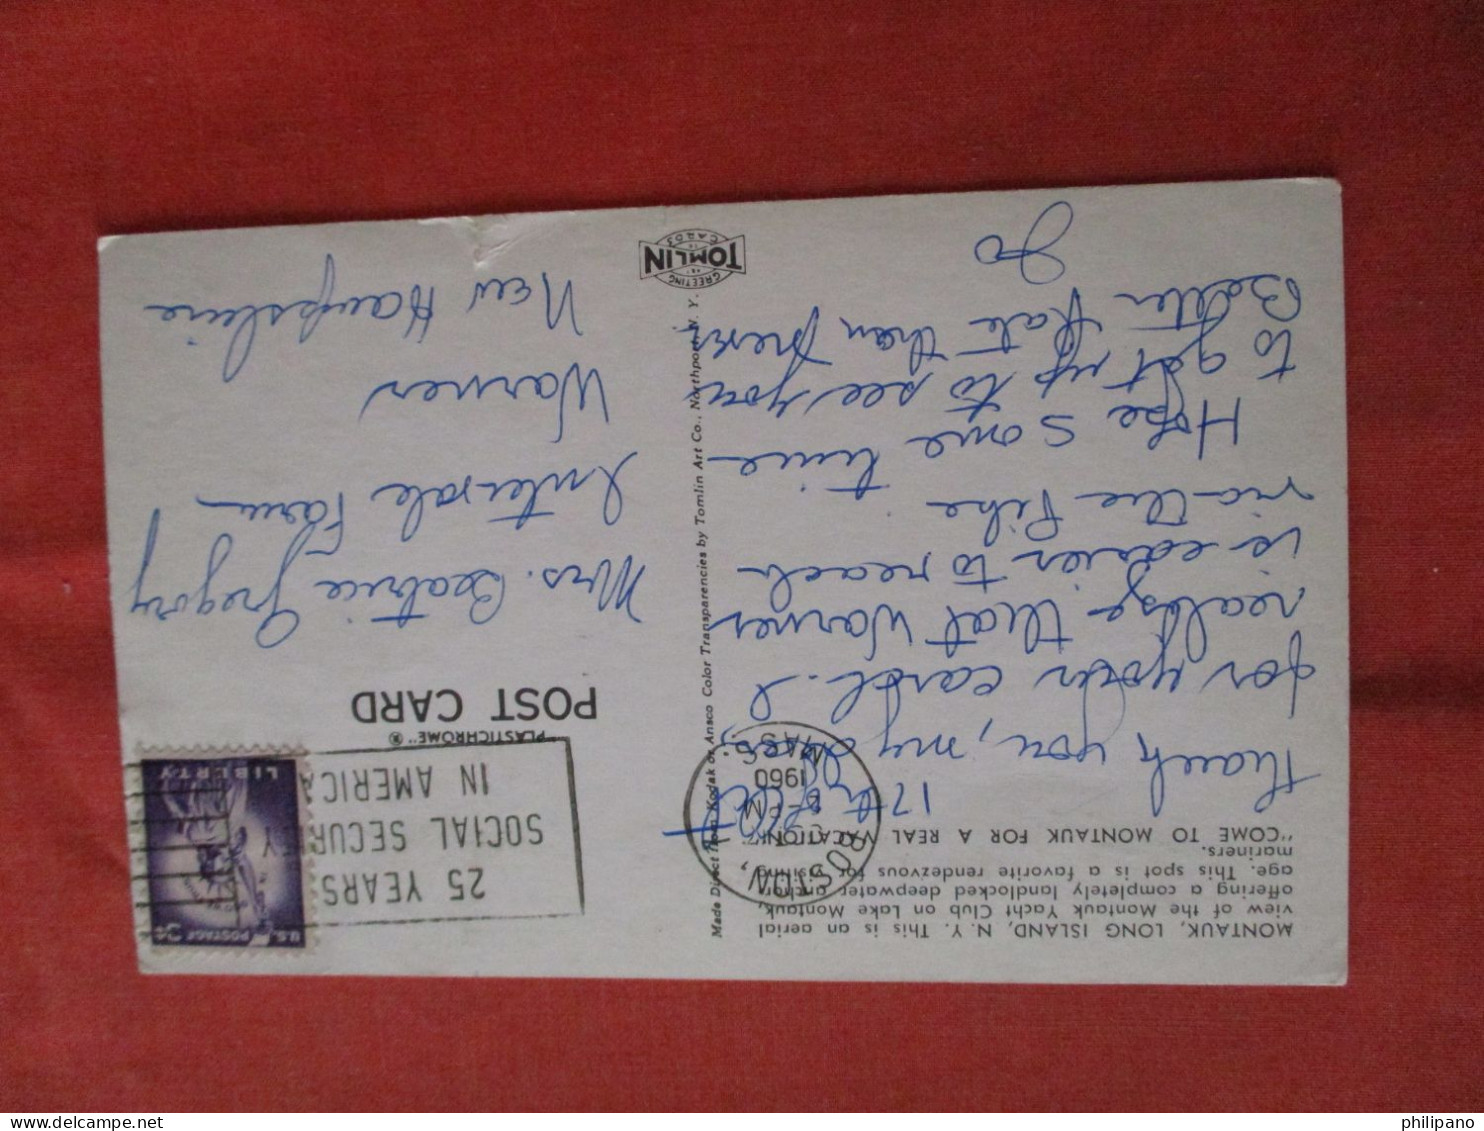 MONTAUK, LONG ISLAND, N. Y. This is an aerial
view of the Montauk Yacht Club on Lake Montauk,
offering a completely landlocked deepwater anchor-
age. This spot is a favorite rendezvous for visiting
mariners.
"COME TO MONTAUK FOR A REAL VACATION."
17th
Thank you, my dear,
for your card. I
realize that Warner
is easier to reach
via the Pike
Hope some time
to get up to see you
Better late than never
Jo
Made Direct from Kodak or Ansco Color Transparencies by Tomlin Art Co., Northport, N. Y.
GREETING
TOMLIN
CARDS
BOSTON,
PM
1960
MASS.
25 YEARS
SOCIAL SECURITY
IN AMERICA
U.S. POSTAGE 3¢
LIBERTY
"PLASTICHROME"®
POST CARD
Mrs. Beatrice Gregory
Intervale Farm
Warner
New Hampshire
philipano